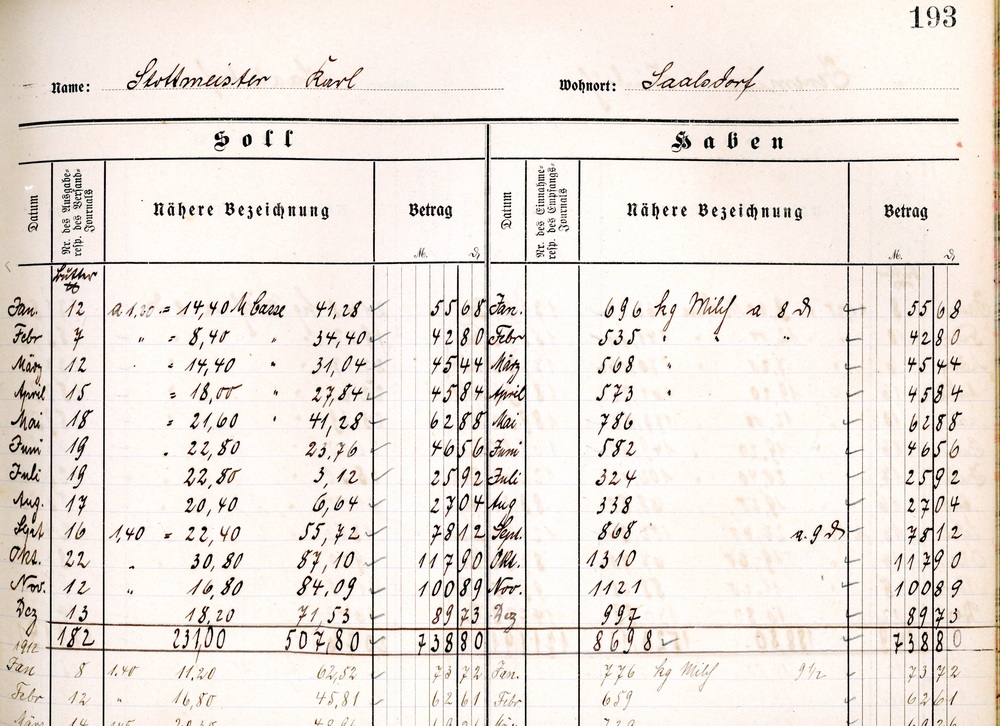 193
Name: Stottmeister Karl Wohnort: Saalsdorf
Soll Haben
Datum Nr. des Ausgabe- resp. des Versand-Journals Nähere Bezeichnung Betrag Datum Nr. des Einnahme- resp. des Empfangs-Journals Nähere Bezeichnung Betrag
M. ₰ M. ₰
Butter
℔
Jan. 12 a 1,20 = 14,40 M Casse 41,28 55 68 Jan. 696 kg Milch a 8 ₰ 55 68
Febr 7 " = 8,40 " 34,40 42 80 Febr 535 " " " 42 80
März 12 = 14,40 " 31,04 45 44 März 568 " 45 44
April 15 = 18,00 " 27,84 45 84 April 573 " 45 84
Mai 18 = 21,60 " 41,28 62 88 Mai 786 62 88
Juni 19 " 22,80 23,76 46 56 Juni 582 46 56
Juli 19 22,80 3,12 25 92 Juli 324 25 92
Aug. 17 20,40 6,64 27 04 Aug 338 27 04
Sept 16 1,40 = 22,40 55,72 78 12 Sept. 868 a. 9 ₰ 78 12
Okt. 22 " 30,80 87,10 117 90 Okt. 1310 117 90
Nov. 12 " 16,80 84,09 100 89 Nov. 1121 100 89
Dez 13 18,20 71,53 89 73 Dez 997 89 73
182 231,00 507,80 738 80 8698 738 80
1912
Jan 8 1.40 11,20 62,52 73 72 Jan. 776 kg Milch 9½ 73 72
Febr 12 " 16,80 45,81 62 61 Febr 659 62 61
März 14 1,45 20,30